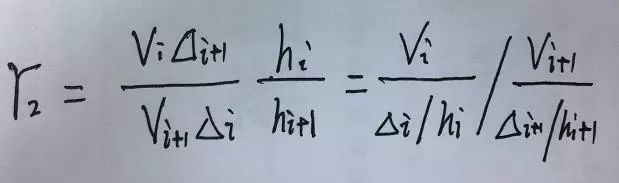 γ₂ = \frac{V_i Δ_{i+1}}{V_{i+1} Δ_i} \frac{h_i}{h_{i+1}} = \frac{V_i}{Δ_i/h_i} / \frac{V_{i+1}}{Δ_{i+1}/h_{i+1}}